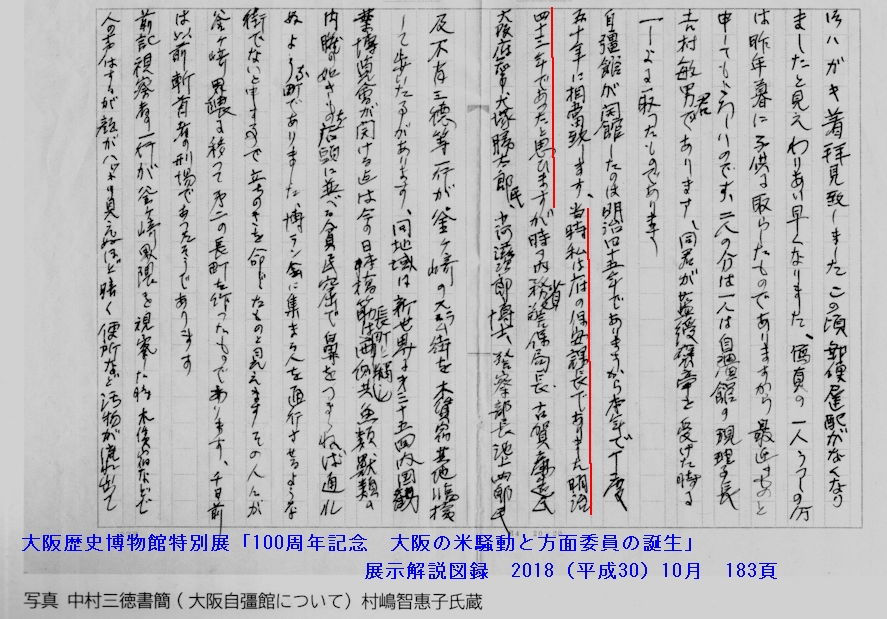 ハガキ着拝見致しましたこの頃郵便配がなくなり
ましたと見えわりあい早くなりました、写真の一人うつしの方
は昨年暮に子供に取られたものでありますから最近のものと
申してもよろしいのです、二人の分は一人は自彊館の現理事長
吉村敏男君であります、同君が藍綬褒章を受けた時に
一しよに取つたものであります
自彊館が開館したのは明治四十五年でありますから本年で丁度
五十年に相当致します、当時私は府の保安課長でありました明治
四十三年であつたと思ひますが時の内務省警保局長古賀廉造氏
大阪府犬塚勝太郎氏、小河滋次郎博士、警察部長池上四郎氏
及不肖三徳等一行が釜ヶ崎のスラム街を木賃宿其他臨検
して歩いた事があります、同地域は新世界第五回内国勧
業博覧会が開ける迄は今の日本橋筋は長町と称し両側共魚類獣類の
内臓の如きものを店頭に並べる貧民窟で鼻をつまゝねば通れ
ぬような町でありました、博ラン会に集まる人を通行させるような
街でないと申すので立ちのきを命じたものと見えますその人々が
釜ヶ崎界隈に移つて第二の長町を作つたものであります、千日前
は以前斬首者の刑場であつたそうであります
前記視察者の一行が釜ヶ崎界隈を視察した時木賃宿なで
人の声はするが顔がハッキリ見えぬほど暗く便所など汚物が流れ出て
大阪歴史博物館特別展「100周年記念　大阪の米騒動と方面委員の誕生」
展示解説図録　2018（平成30）10月　183頁
写真 中村三徳書簡（大阪自彊館について）村嶋智惠子氏蔵